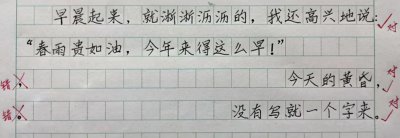 早晨起来，就淅淅沥沥的，我还高兴地说：对
“春雨贵如油，今年来得这么早！”
错，今天的黄昏，对
错。没有写就一个字来。对